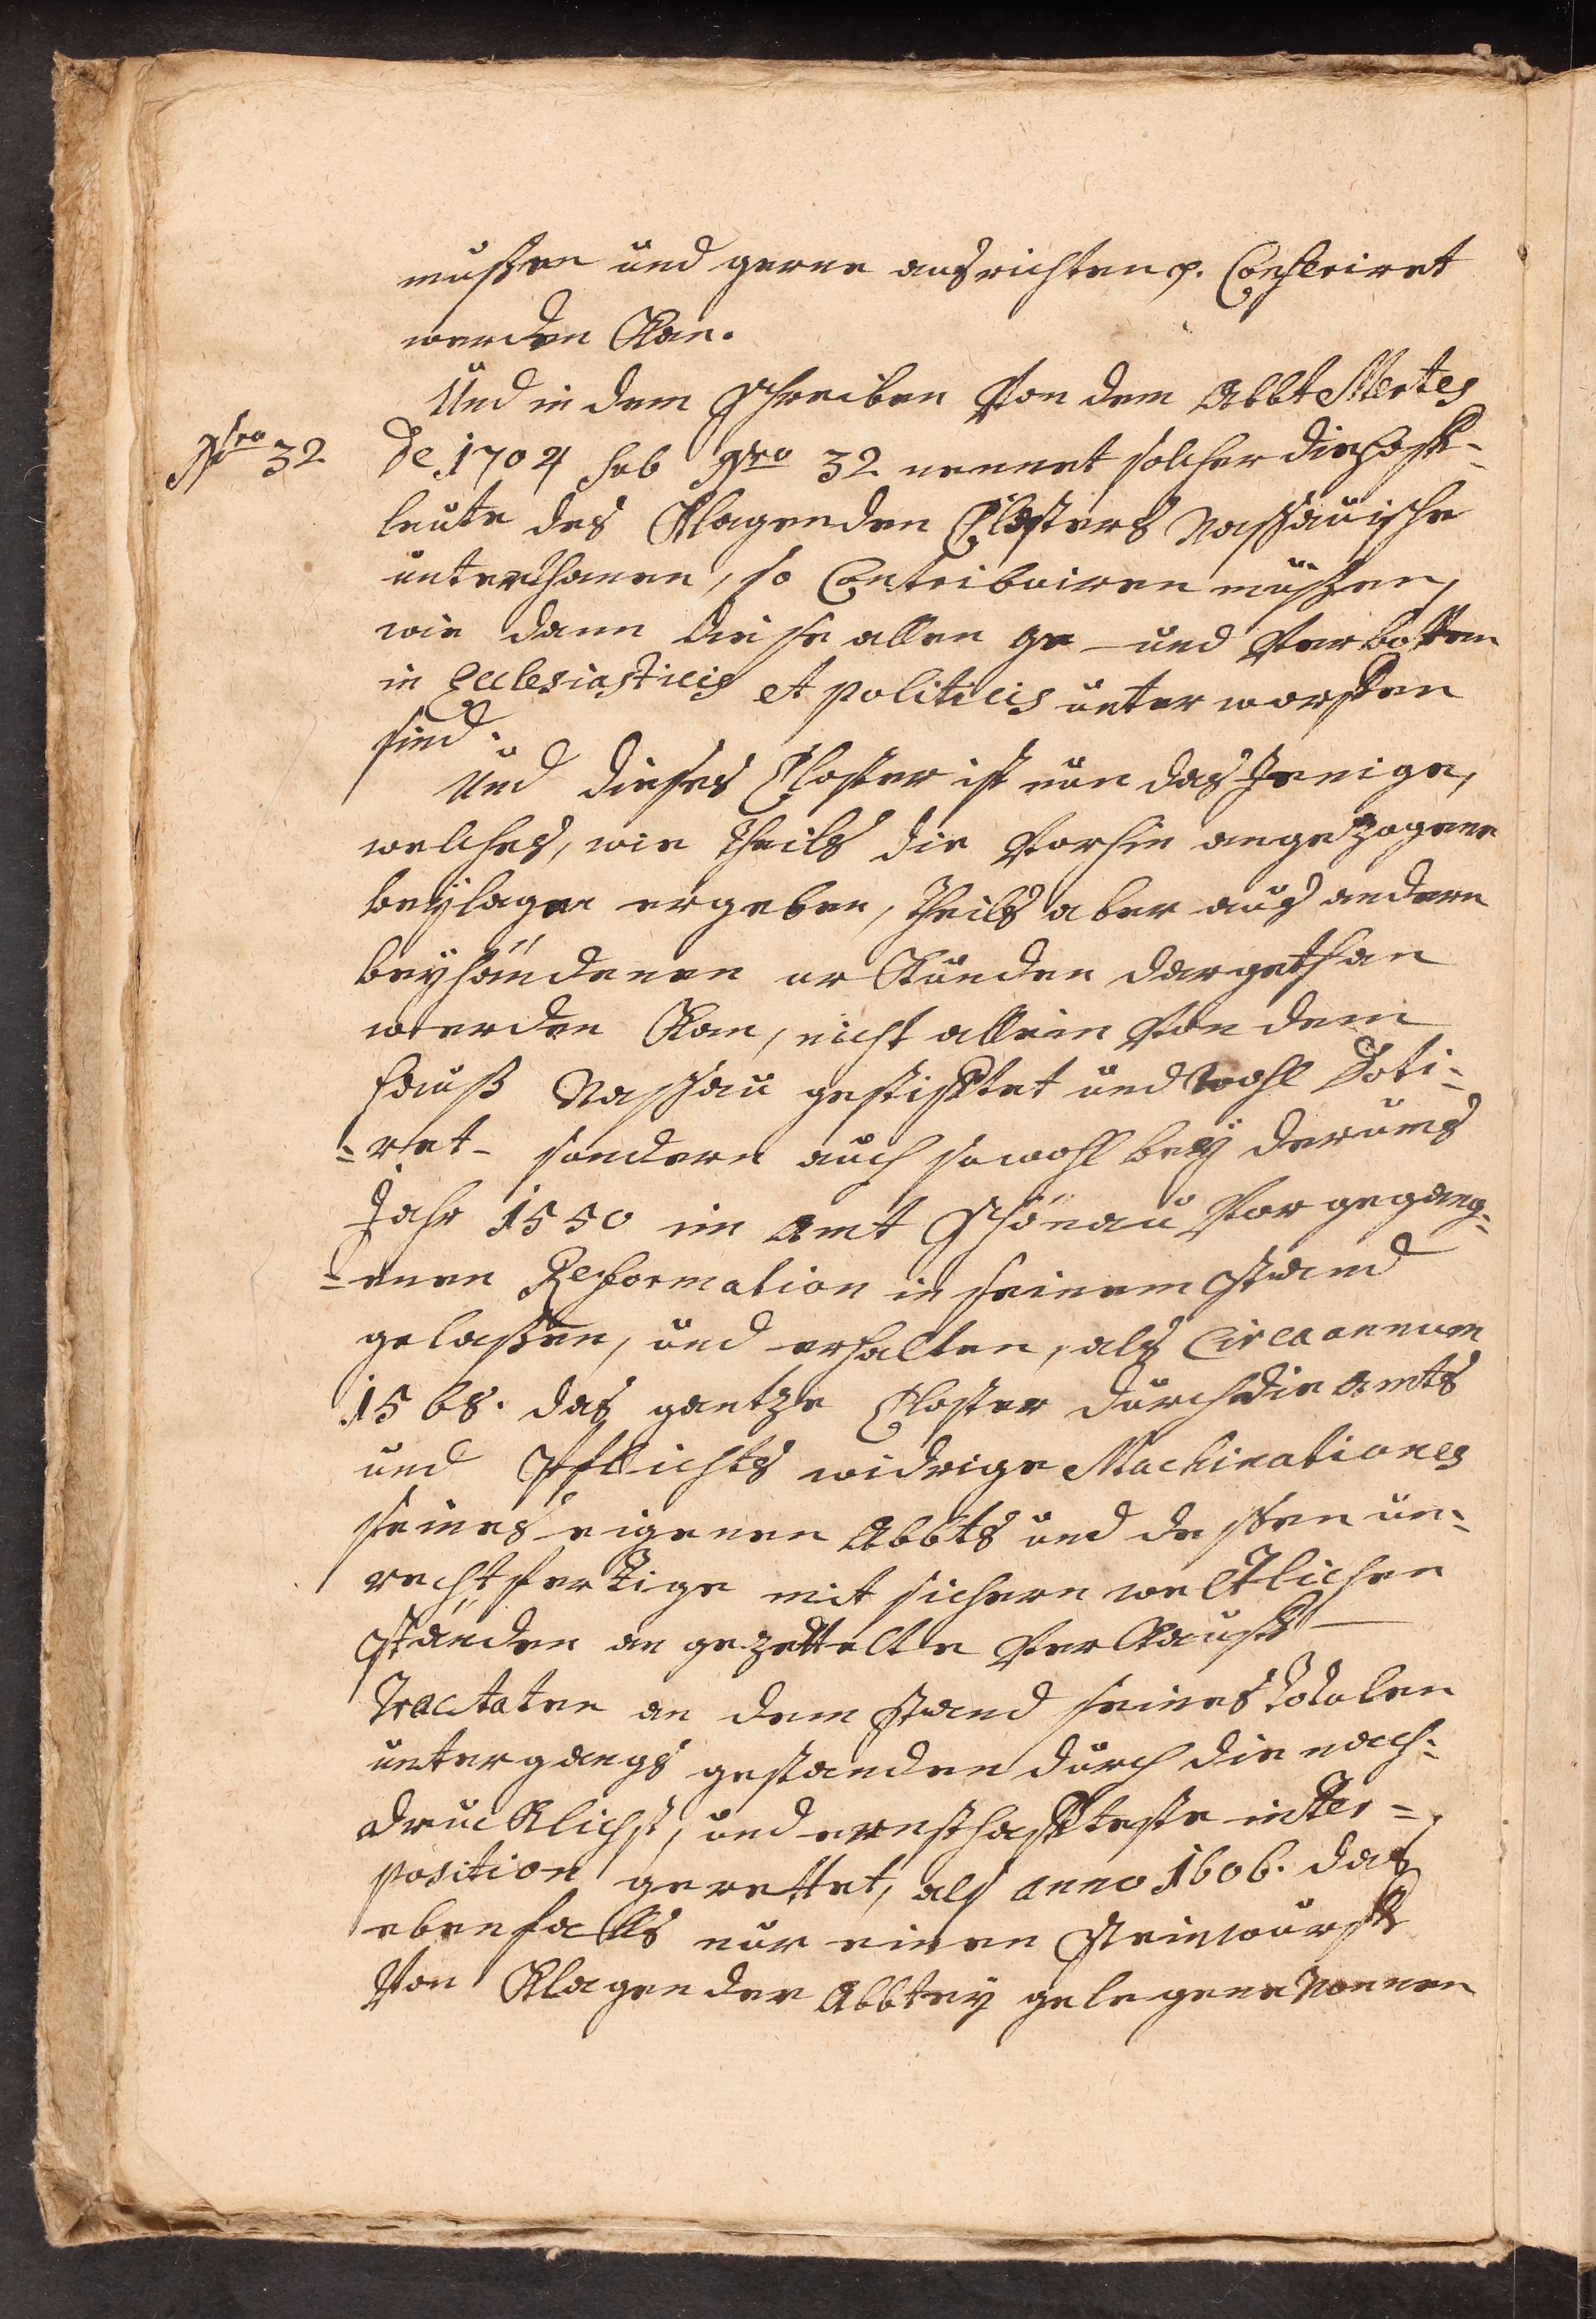 mußen und gerne ausrichten p. Conferiret
werden Kan.
Und in dem Schreiben Von dem Abbt Mertes
Nro 32
de 1704 sub Nro 32 nennet solcher die Hoff-
leute des Klagenden Closters Nassauische
unterthanen, so Contribuiren müßen,
wie dann diese allen ge- und Verbotten
in Ecclesiasticis et politicis unterworffen
sind.
Und dieses Closter ist nun das Jenige,
welches, wie theils die Vorhin angezogene
beÿlagen ergeben, theils aber aus andern
beÿhändenen urkunden dargethan
werden Kan, nicht allein Von dem
Hauß Nassau gestifftet und wohl Doti-
-ret- sondern auch sowohl beÿ der ums
Jahr 1550 im Amt Schönau Vorgegang-
-enen Reformation in seinem Stand
gelaßen, und erhalten, als Circa annum
1568. das gantze Closter durch die Amts
und Pflichts widrige Machinationes
seines eigenen Abbts und dessen un-
rechtfertige mit sichern weltlichen
Ständen angezettelte Verkauff-
Tractaten an dem Rand seines totalen
untergangs gestanden durch die nach-
drucklichst, und ernsthaffteste inter-
position gerettet, als anno 1606. das
ebenfalls nur einen Steinwurff
Von Klagender Abbteÿ gelegene Nonnen